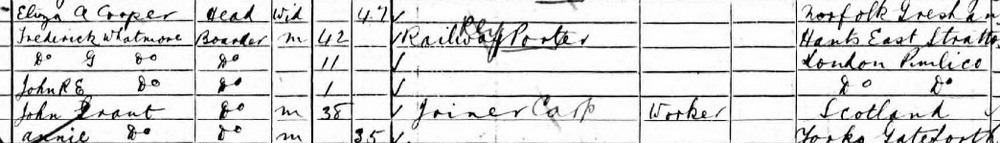 Eliza A Cooper Head Wid 47 Norfolk Gresham
Frederick Whatmore Boarder m 42 Railway Porter Hants East Stratto
Do G Do Do 11 London Pimlico
John R E Do 1 Do Do
John Grant Do m 38 Joiner Carp Worker Scotland
Annie Do Do m 35 Yorks Gateforth